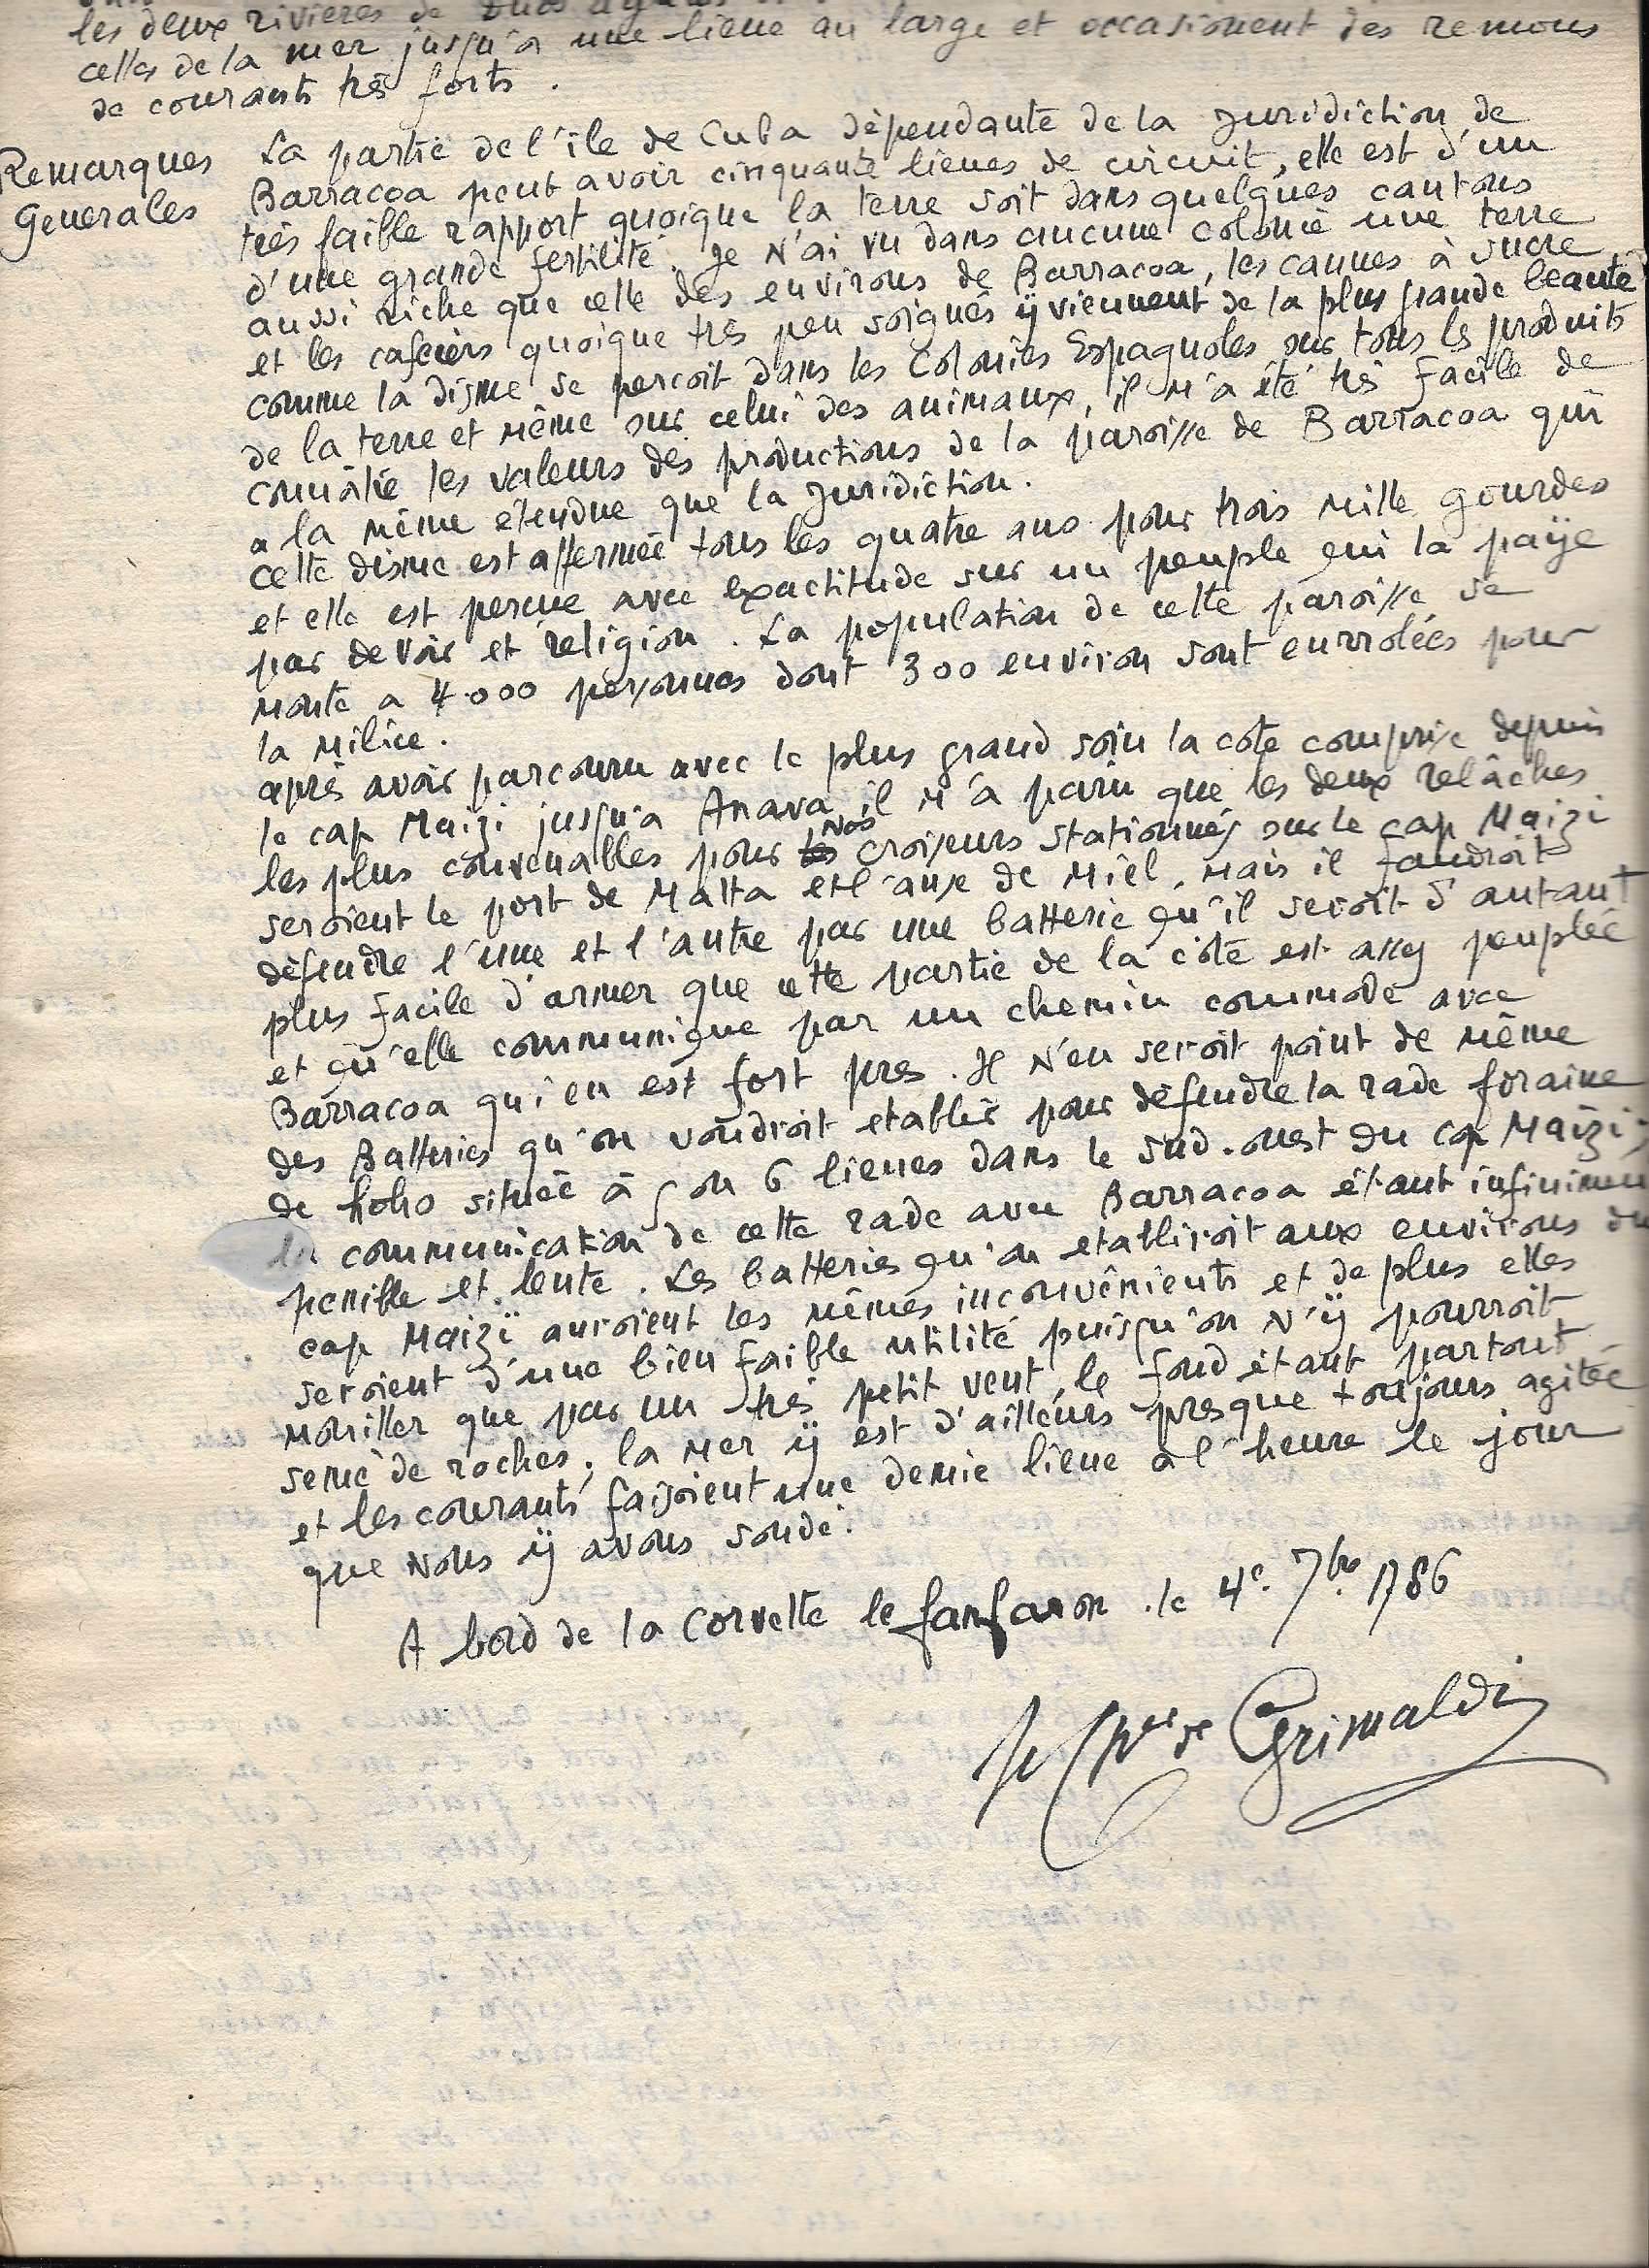 les deux rivieres de
celles de la mer jusqu'a une lieue au large et occasionent des remous
de courants très forts.
Remarques Generales
La partie de l'ile de Cuba dépendante de la Juridiction de
Barracoa peut avoir cinquante lieues de circuit, elle est d'un
très faible rapport quoique la terre soit dans quelques cantons
d'une grande fertilité. Je N'ai vu dans aucune colonie une terre
aussi riche que celle des environs de Barracoa, les cannes à sucre
et les cafeiers quoique très peu soignés ÿ viennent de la plus grande beauté
comme la disme se percoit dans les Colonies Espagnoles sur tous les produits
de la terre et même sur celui des animaux, il m'a été très facile de
connaître les valeurs des productions de la paroisse de Barracoa qui
a la même étendue que la Juridiction.
cette disme est affermée tous les quatre ans pour trois mille gourdes
et elle est perçue avec exactitude sur un peuple qui la paÿe
par devoir et religion. La population de cette paroisse se
monte a 4000 personnes dont 300 environ sont enrrolées pour
la Milice.
après avoir parcouru avec le plus grand soin la cote comprise depuis
le cap Maizi jusqu'a Anava il M'a parû que les deux relâches
les plus convenables pour les Nos croiseurs stationnés sur le cap Maizi
seroient le port de Matta et l'anse de Miel, mais il faudroit
défendre l'une et l'autre par une batterie qu'il seroit d'autant
plus facile d'armer que cette partie de la côte est assez peuplée
et qu'elle communique par un chemin commode avec
Barracoa qui en est fort pres. Il N'en seroit point de même
des Batteries qu'on voudroit etablir pour défendre la rade foraine
de hoho située à 5 ou 6 lieues dans le sud-ouest du cap Maizi;
la communication de cette rade avec Barracoa étant infinimen
penible et lente. Les batteries qu'on etabliroit aux environs du
cap Maizï auroient les mêmes inconvénients et de plus elles
seroient d'une bien faible utilité puisqu'on N'ÿ pourroit
mouiller que par un très petit vent, le fond étant partout
semé de roches; la Mer ÿ est d'ailleurs presque toujours agitée
et les courants faisoient une demie lieue à l'heure le jour
que Nous ÿ avons sondé.
A bord de la Corvette le fanfaron. le 4e. 7bre 1786
de Grimaldi